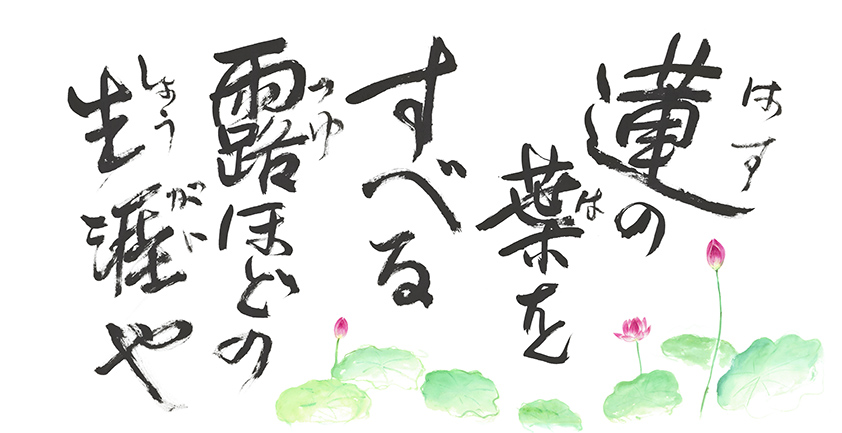 蓮の
はす
葉を
は
すべる
露ほどの
つゆ
生涯や
しょうがい